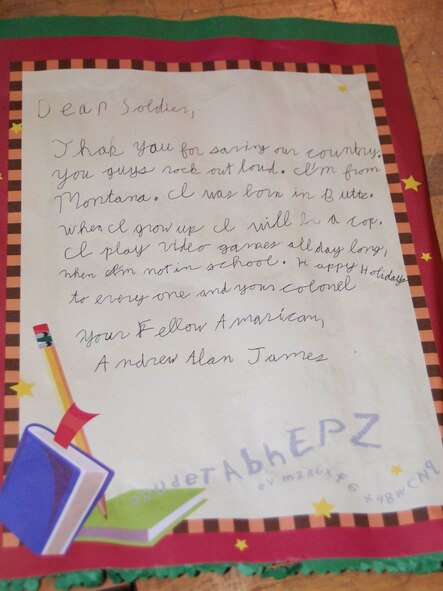 Dear Soldier,
Thak you for saving our country.
you guys rock out loud. I'm from
Montana. I was born in Butte.
when I grow up I will be a cop.
I play video games all day long,
when I'm not in school. Happy Holidays
to every one and your colonel
your Fellow Amarican,
Andrew Alan James